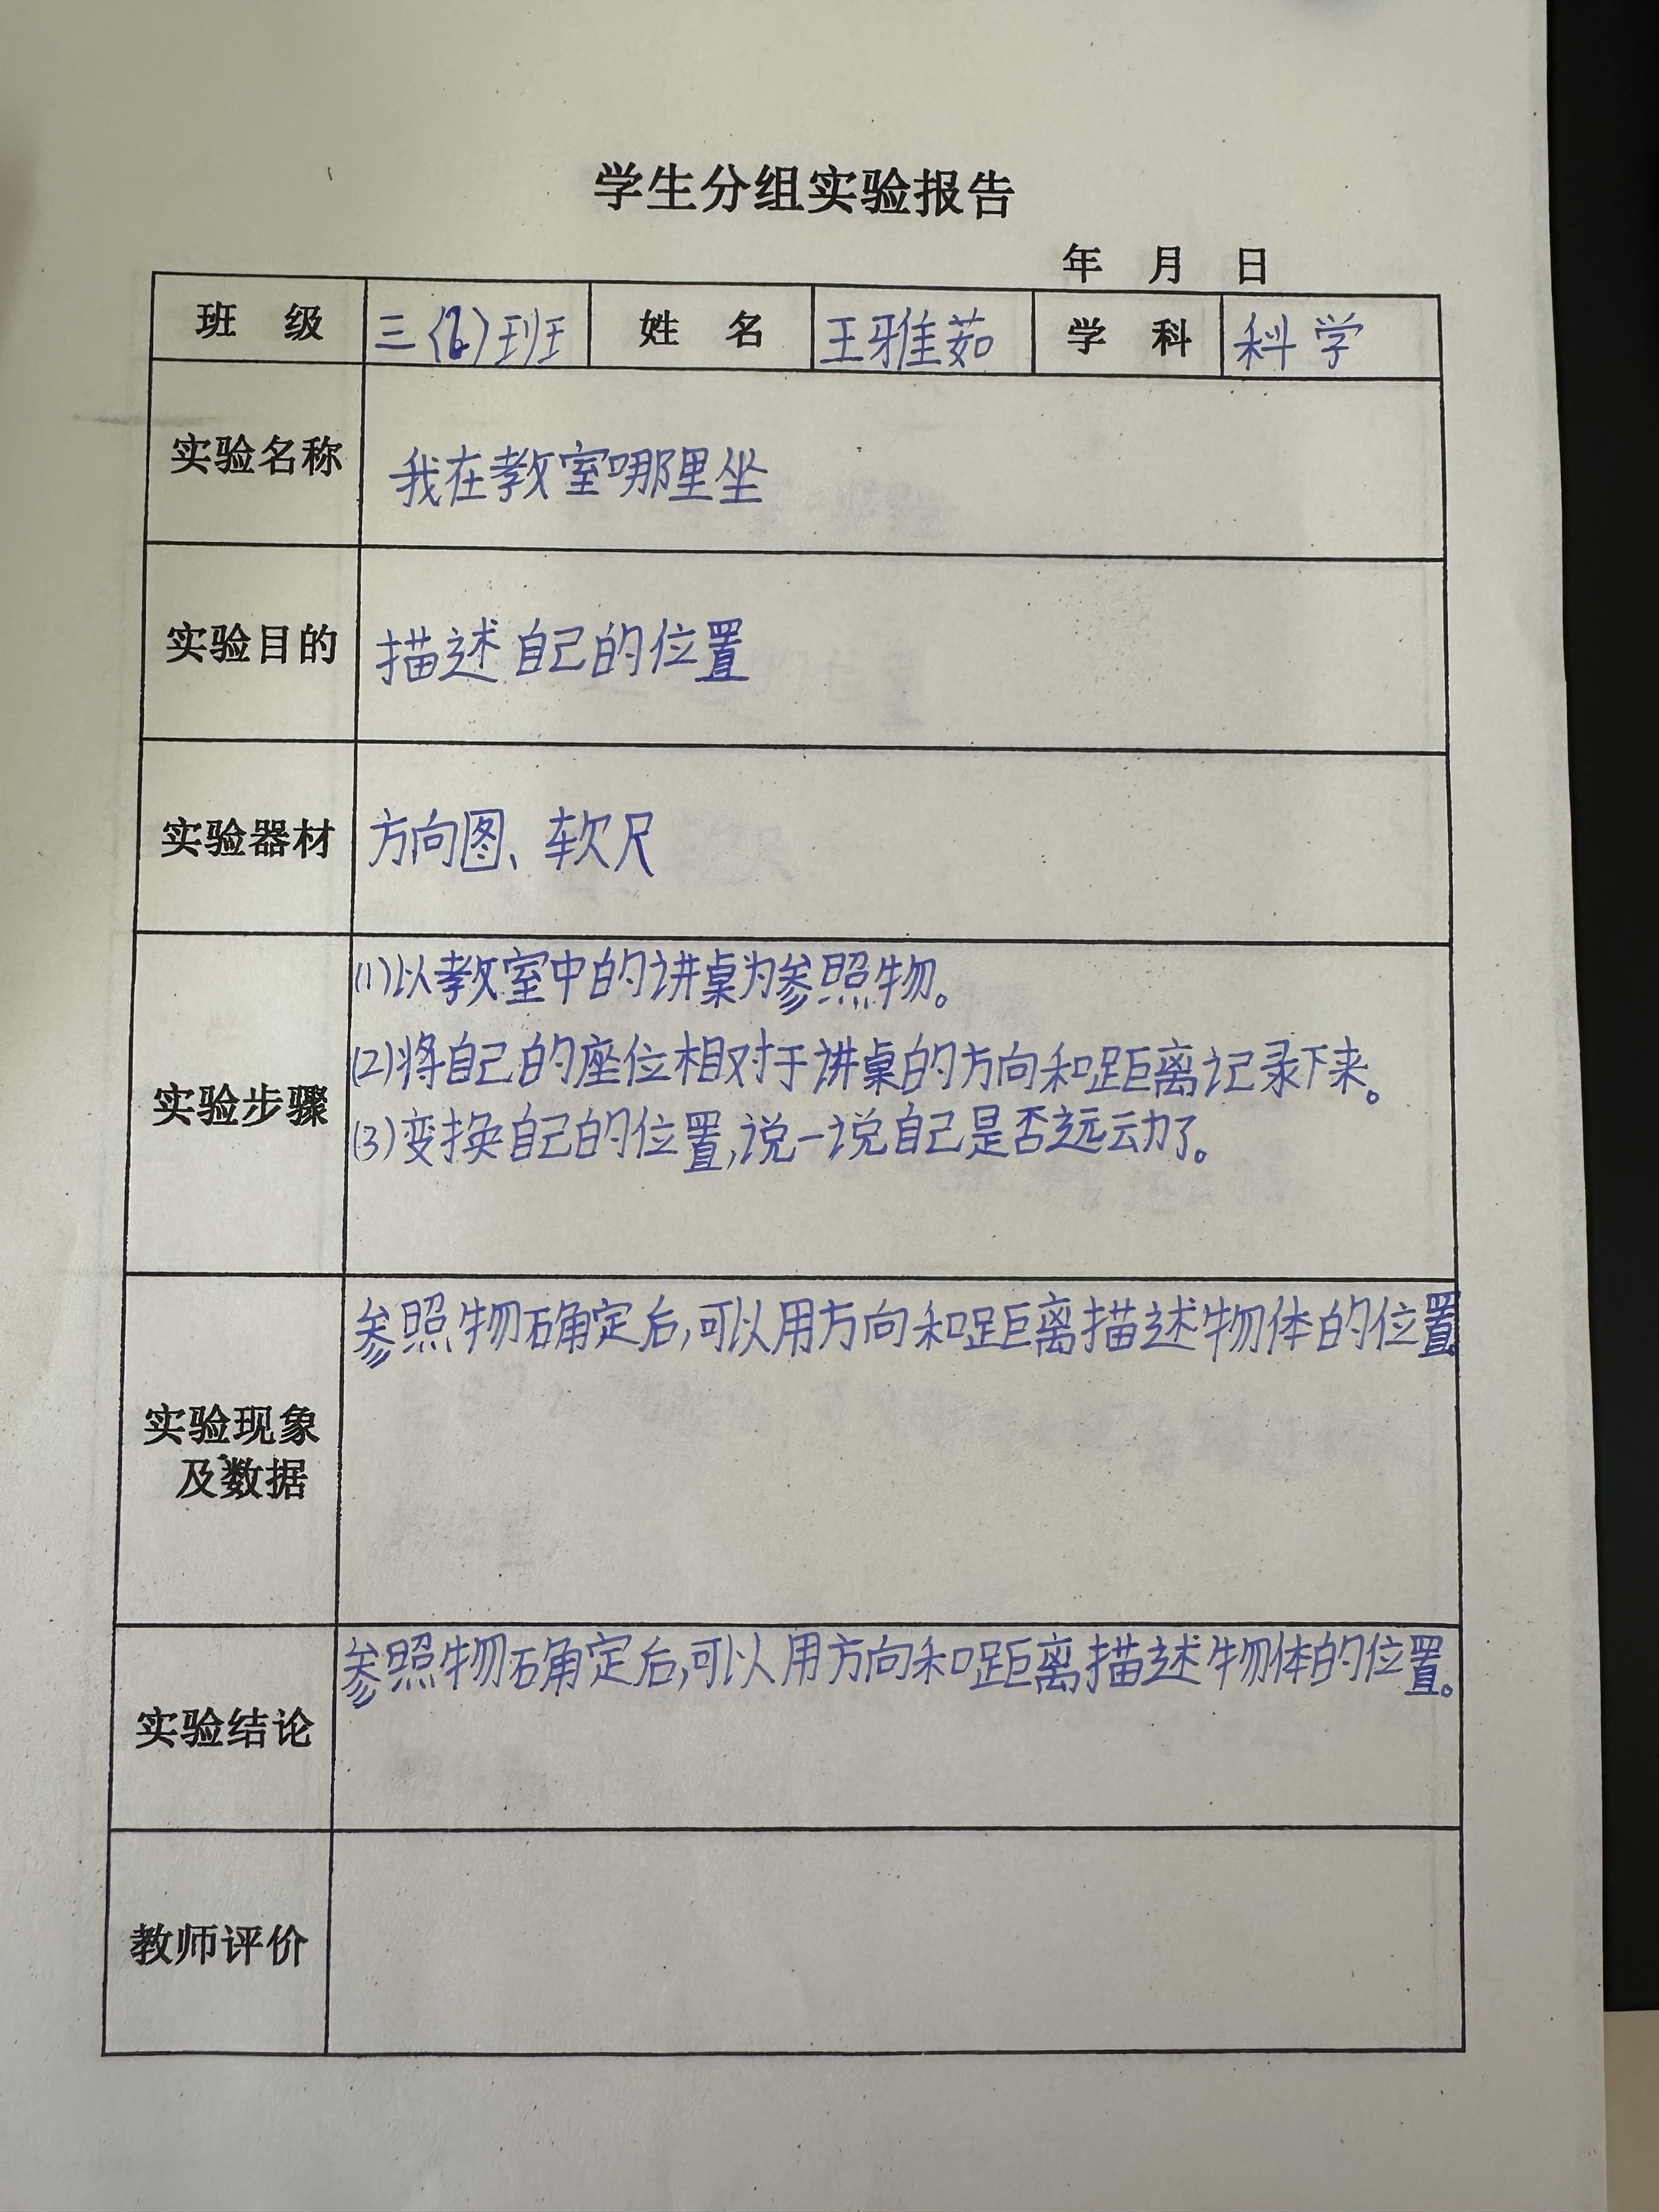 学生分组实验报告
年 月 日
班 级 三(6)班 姓 名 王雅茹 学 科 科学
实验名称 我在教室哪里坐
实验目的 描述自己的位置
实验器材 方向图、软尺
(1)以教室中的讲桌为参照物。
(2)将自己的座位相对于讲桌的方向和距离记录下来。
实验步骤
(3)变换自己的位置,说一说自己是否远动了。
参照物确定后,可以用方向和距离描述物体的位置
实验现象
及数据
参照物确定后,可以用方向和距离描述物体的位置。
实验结论
教师评价